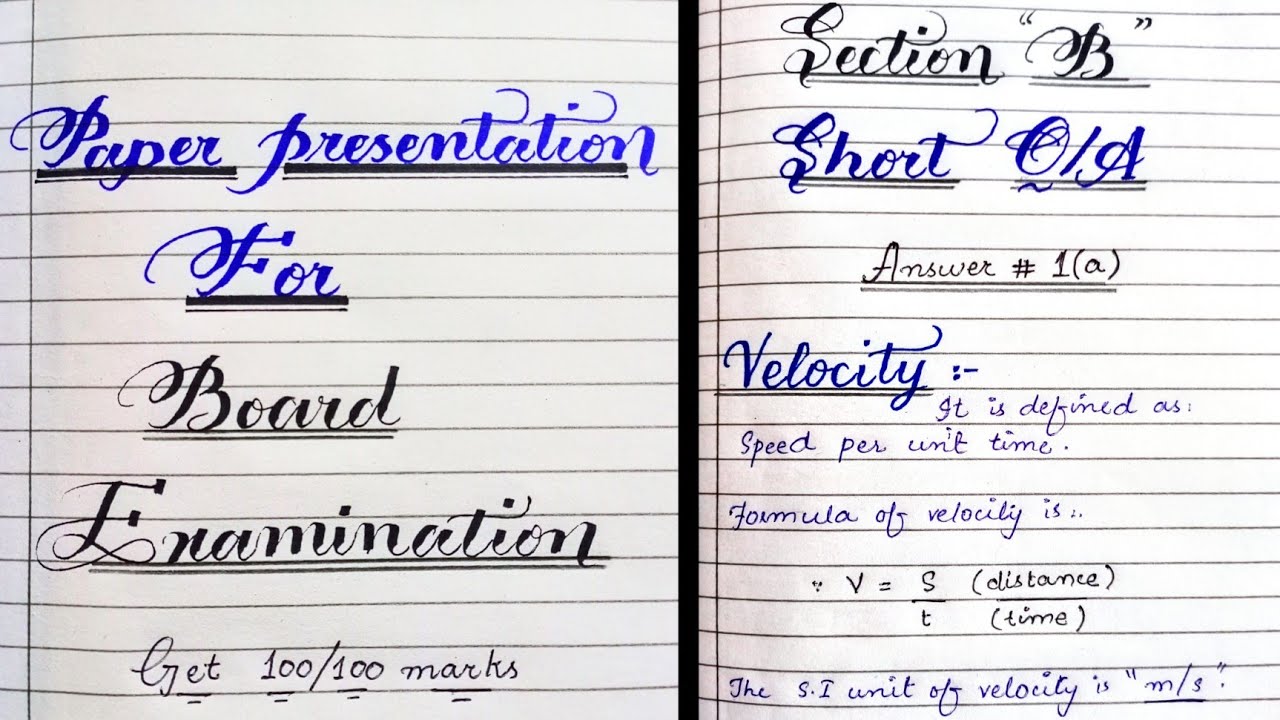 Paper presentation
For
Board
Examination
Get 100/100 marks
Section "B"
Short Q/A
Answer # 1(a)
Velocity :-
It is defined as:
Speed per unit time.
Formula of velocity is:.
∵ V = S (distance)
t (time)
The S.I unit of velocity is "m/s".